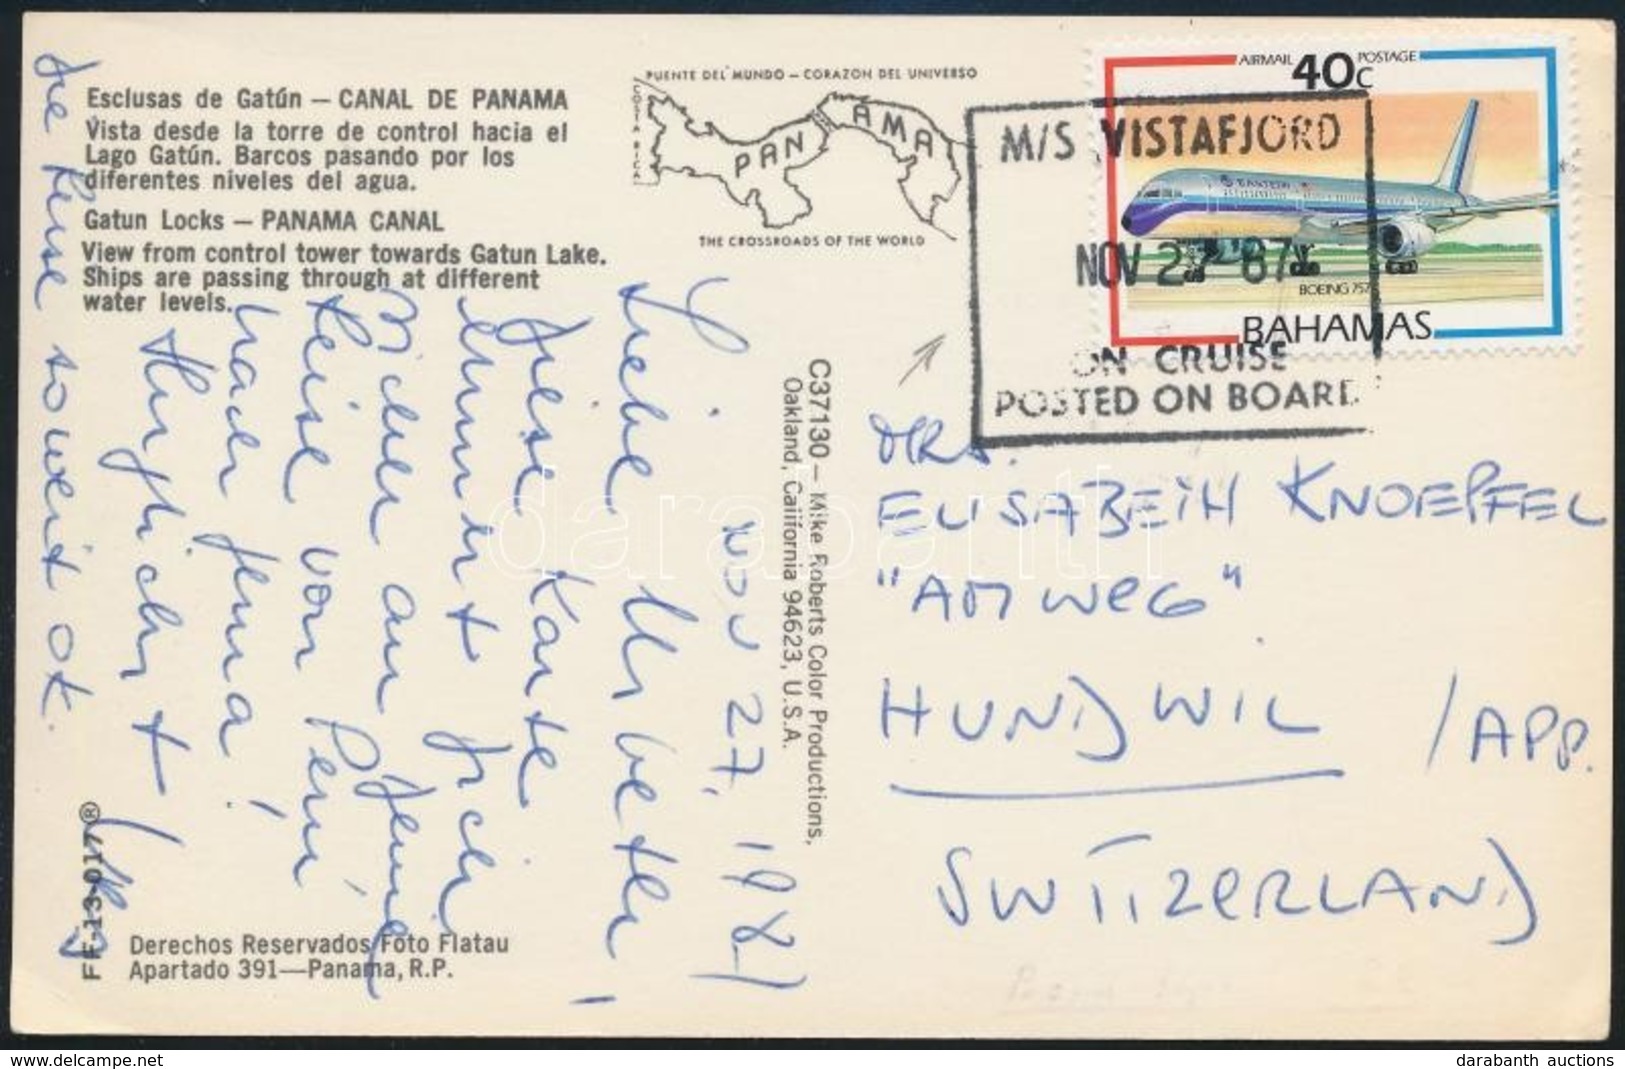 Esclusas de Gatún — CANAL DE PANAMA
Vista desde la torre de control hacia el
Lago Gatún. Barcos pasando por los
diferentes niveles del agua.
Gatun Locks — PANAMA CANAL
View from control tower towards Gatun Lake.
Ships are passing through at different
water levels.
PUENTE DEL MUNDO — CORAZON DEL UNIVERSO
COSTA RICA
PANAMA
THE CROSSROADS OF THE WORLD
AIRMAIL 40c POSTAGE
EASTERN
BOEING 757
BAHAMAS
M/S VISTAFJORD
NOV 27 '87
ON CRUISE
POSTED ON BOARD
C37130 — Mike Roberts Color Productions,
Oakland, California 94623, U.S.A.
NOV 27, 1987
Liebe
diese Karte
nimmt
Reise von
nach
Herzlichst
die Reise soweit ok.
MRS.
ELISABETH KNOEPFEL
"AM WEG"
HUNDWIL /APP.
SWITZERLAND
FF-13-017®
Derechos Reservados Foto Flatau
Apartado 391—Panama, R.P.
darabanth
www.delcampe.net
darabanth auctions